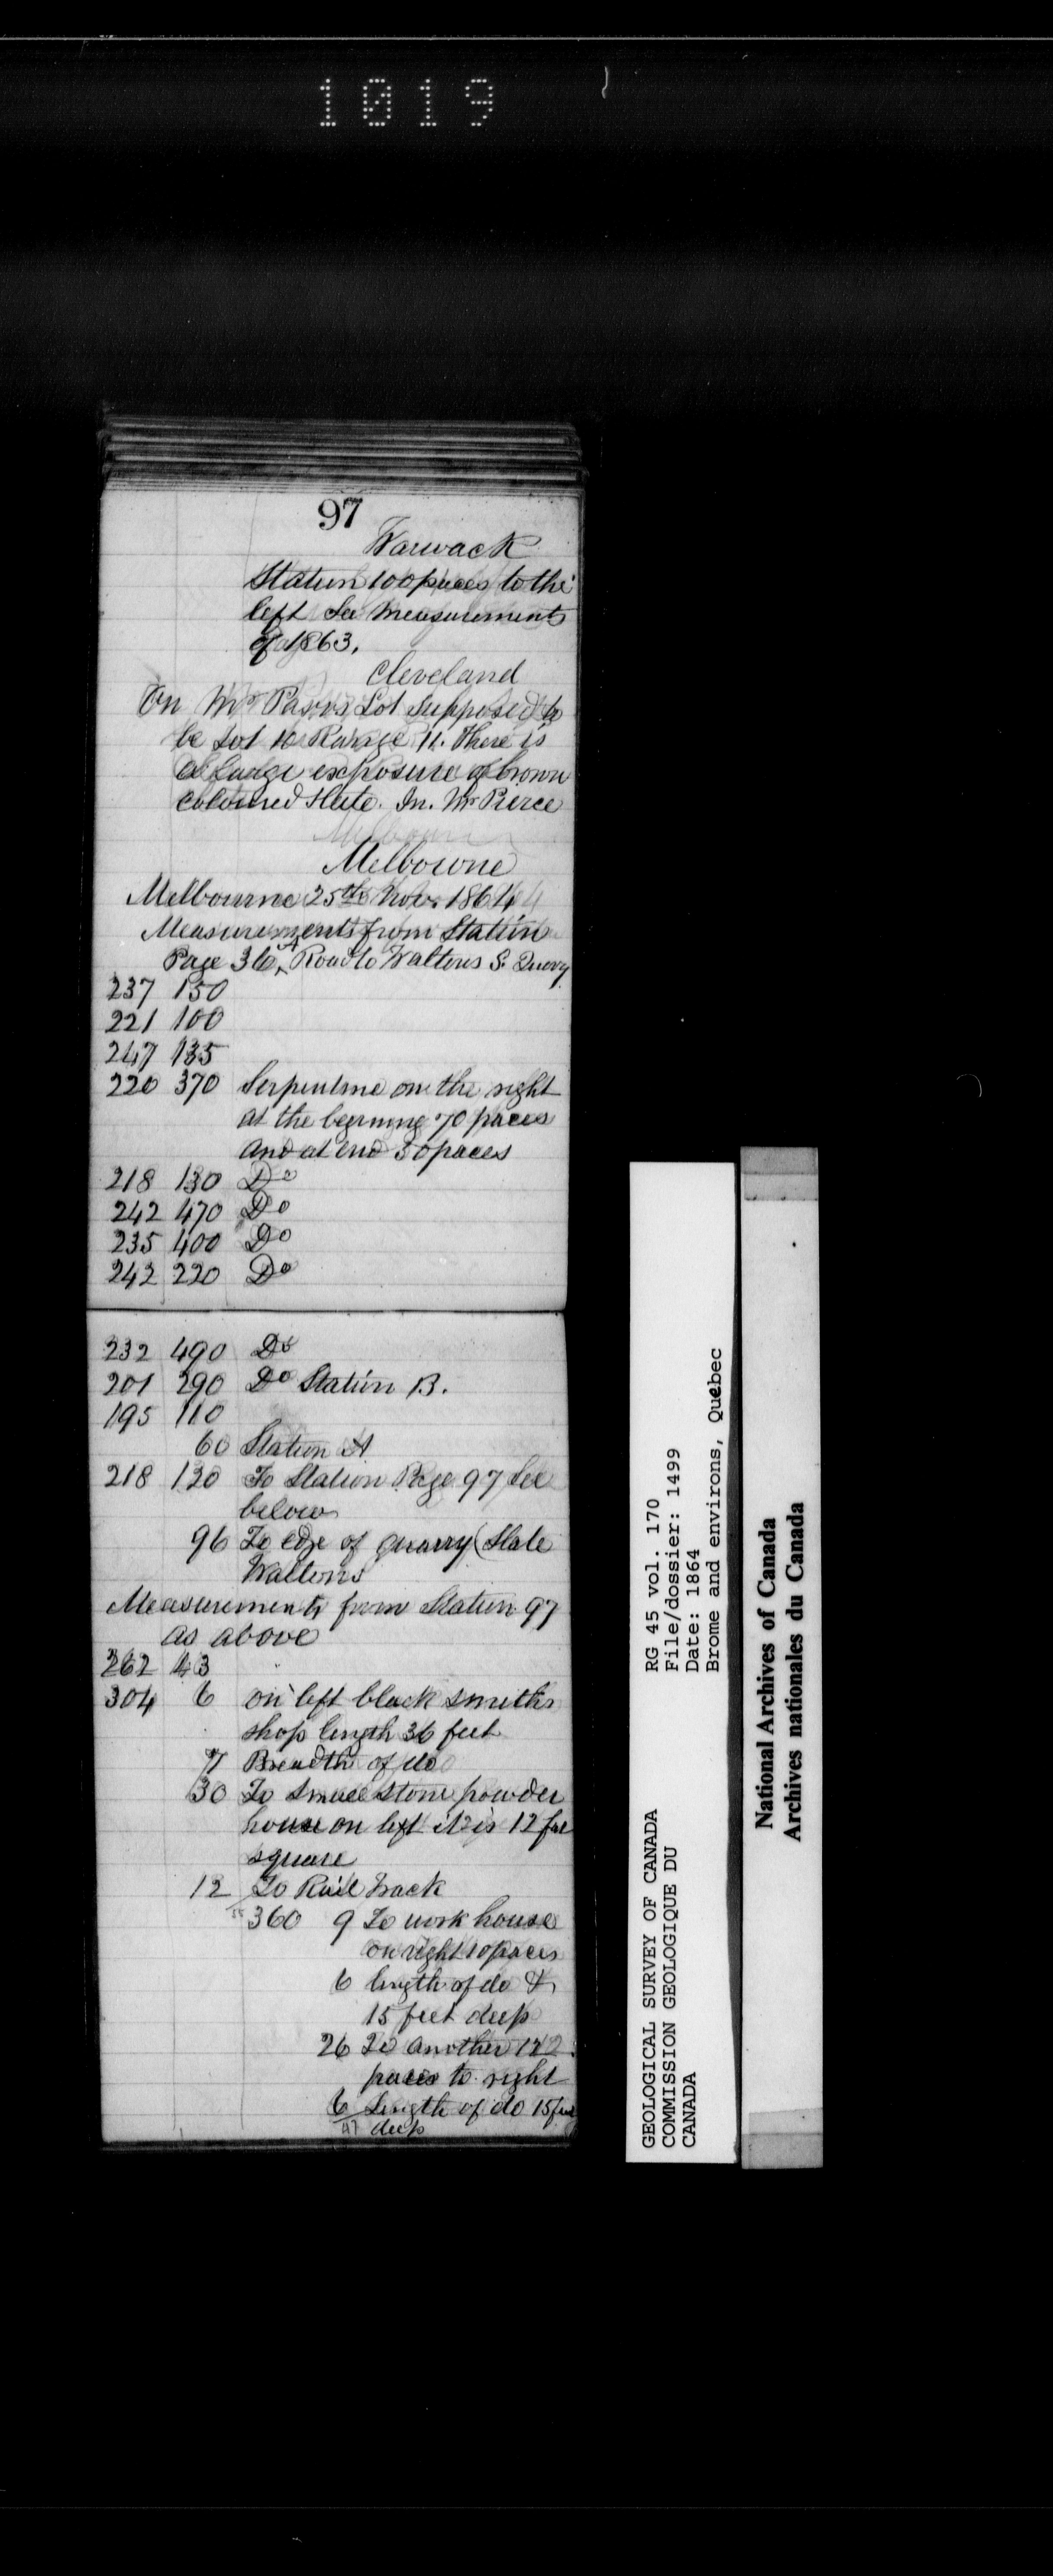 1019
97
Warwack
Station 100 paces to the
left See Measurements
of 1863.
Cleveland
On Mr Lot Supposed to
be Lot 10 Range 11. There is
a large exposure of brown
coloured Slate. In. Mr Pierce
Melbourne
Melbourne 25th Nov. 1864
Measurements from Station
Page 36, A Road to Waltons S. Query
237 150
221 100
247 135
220 370 Serpentine on the right
at the begining 70 paces
and at end 30 paces
218 130 Do
242 470 Do
235 400 Do
242 220 Do
232 490 Do
201 290 Do Station B.
195 110
60 Station A
218 120 To Station Page 97 See
below
96 To edge of quarry (Slate
Waltons
Measurements from Station 97
as above
262 43
304 6 on left black smiths
shop length 36 feet
7 Breadth of do
30 To Small stone powder
house on left it is 12 fee
square
12 To Rail track
360 9 To work house
on right 10 paces
6 length of do &
15 feet deep
26 To another 12
paces to right
6 Length of do 15 feet
47 deep
GEOLOGICAL SURVEY OF CANADA
COMMISSION GEOLOGIQUE DU
CANADA
RG 45 vol. 170
File/dossier: 1499
Date: 1864
Brome and environs, Quebec
National Archives of Canada
Archives nationales du Canada